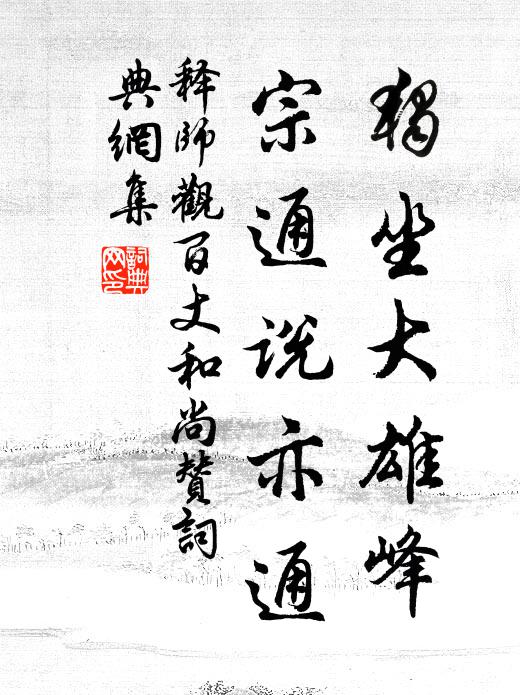 獨坐大雄峰
宗通說亦通
释師觀百丈和尚贊詞
典網集
詞典網印